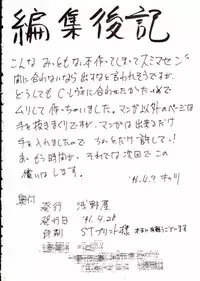 編集後記
こんな みっともない本作ってしまってスミマセン
間に合わないなら出すなと言われそうですが、
どうしても C・レヴォに合わせたかったので
ムリして作っちゃいました。マンガ以外のページは
手を抜きまくりですが、マンガは出来るだけ
手を入れましたので ちょっとだけ許して。!
あ、もう時間が。それでは次回でこの
償いはします。
'91.4.9
奥付
発行 浅野屋
発行日 '91.4.28
印刷 STプリント様